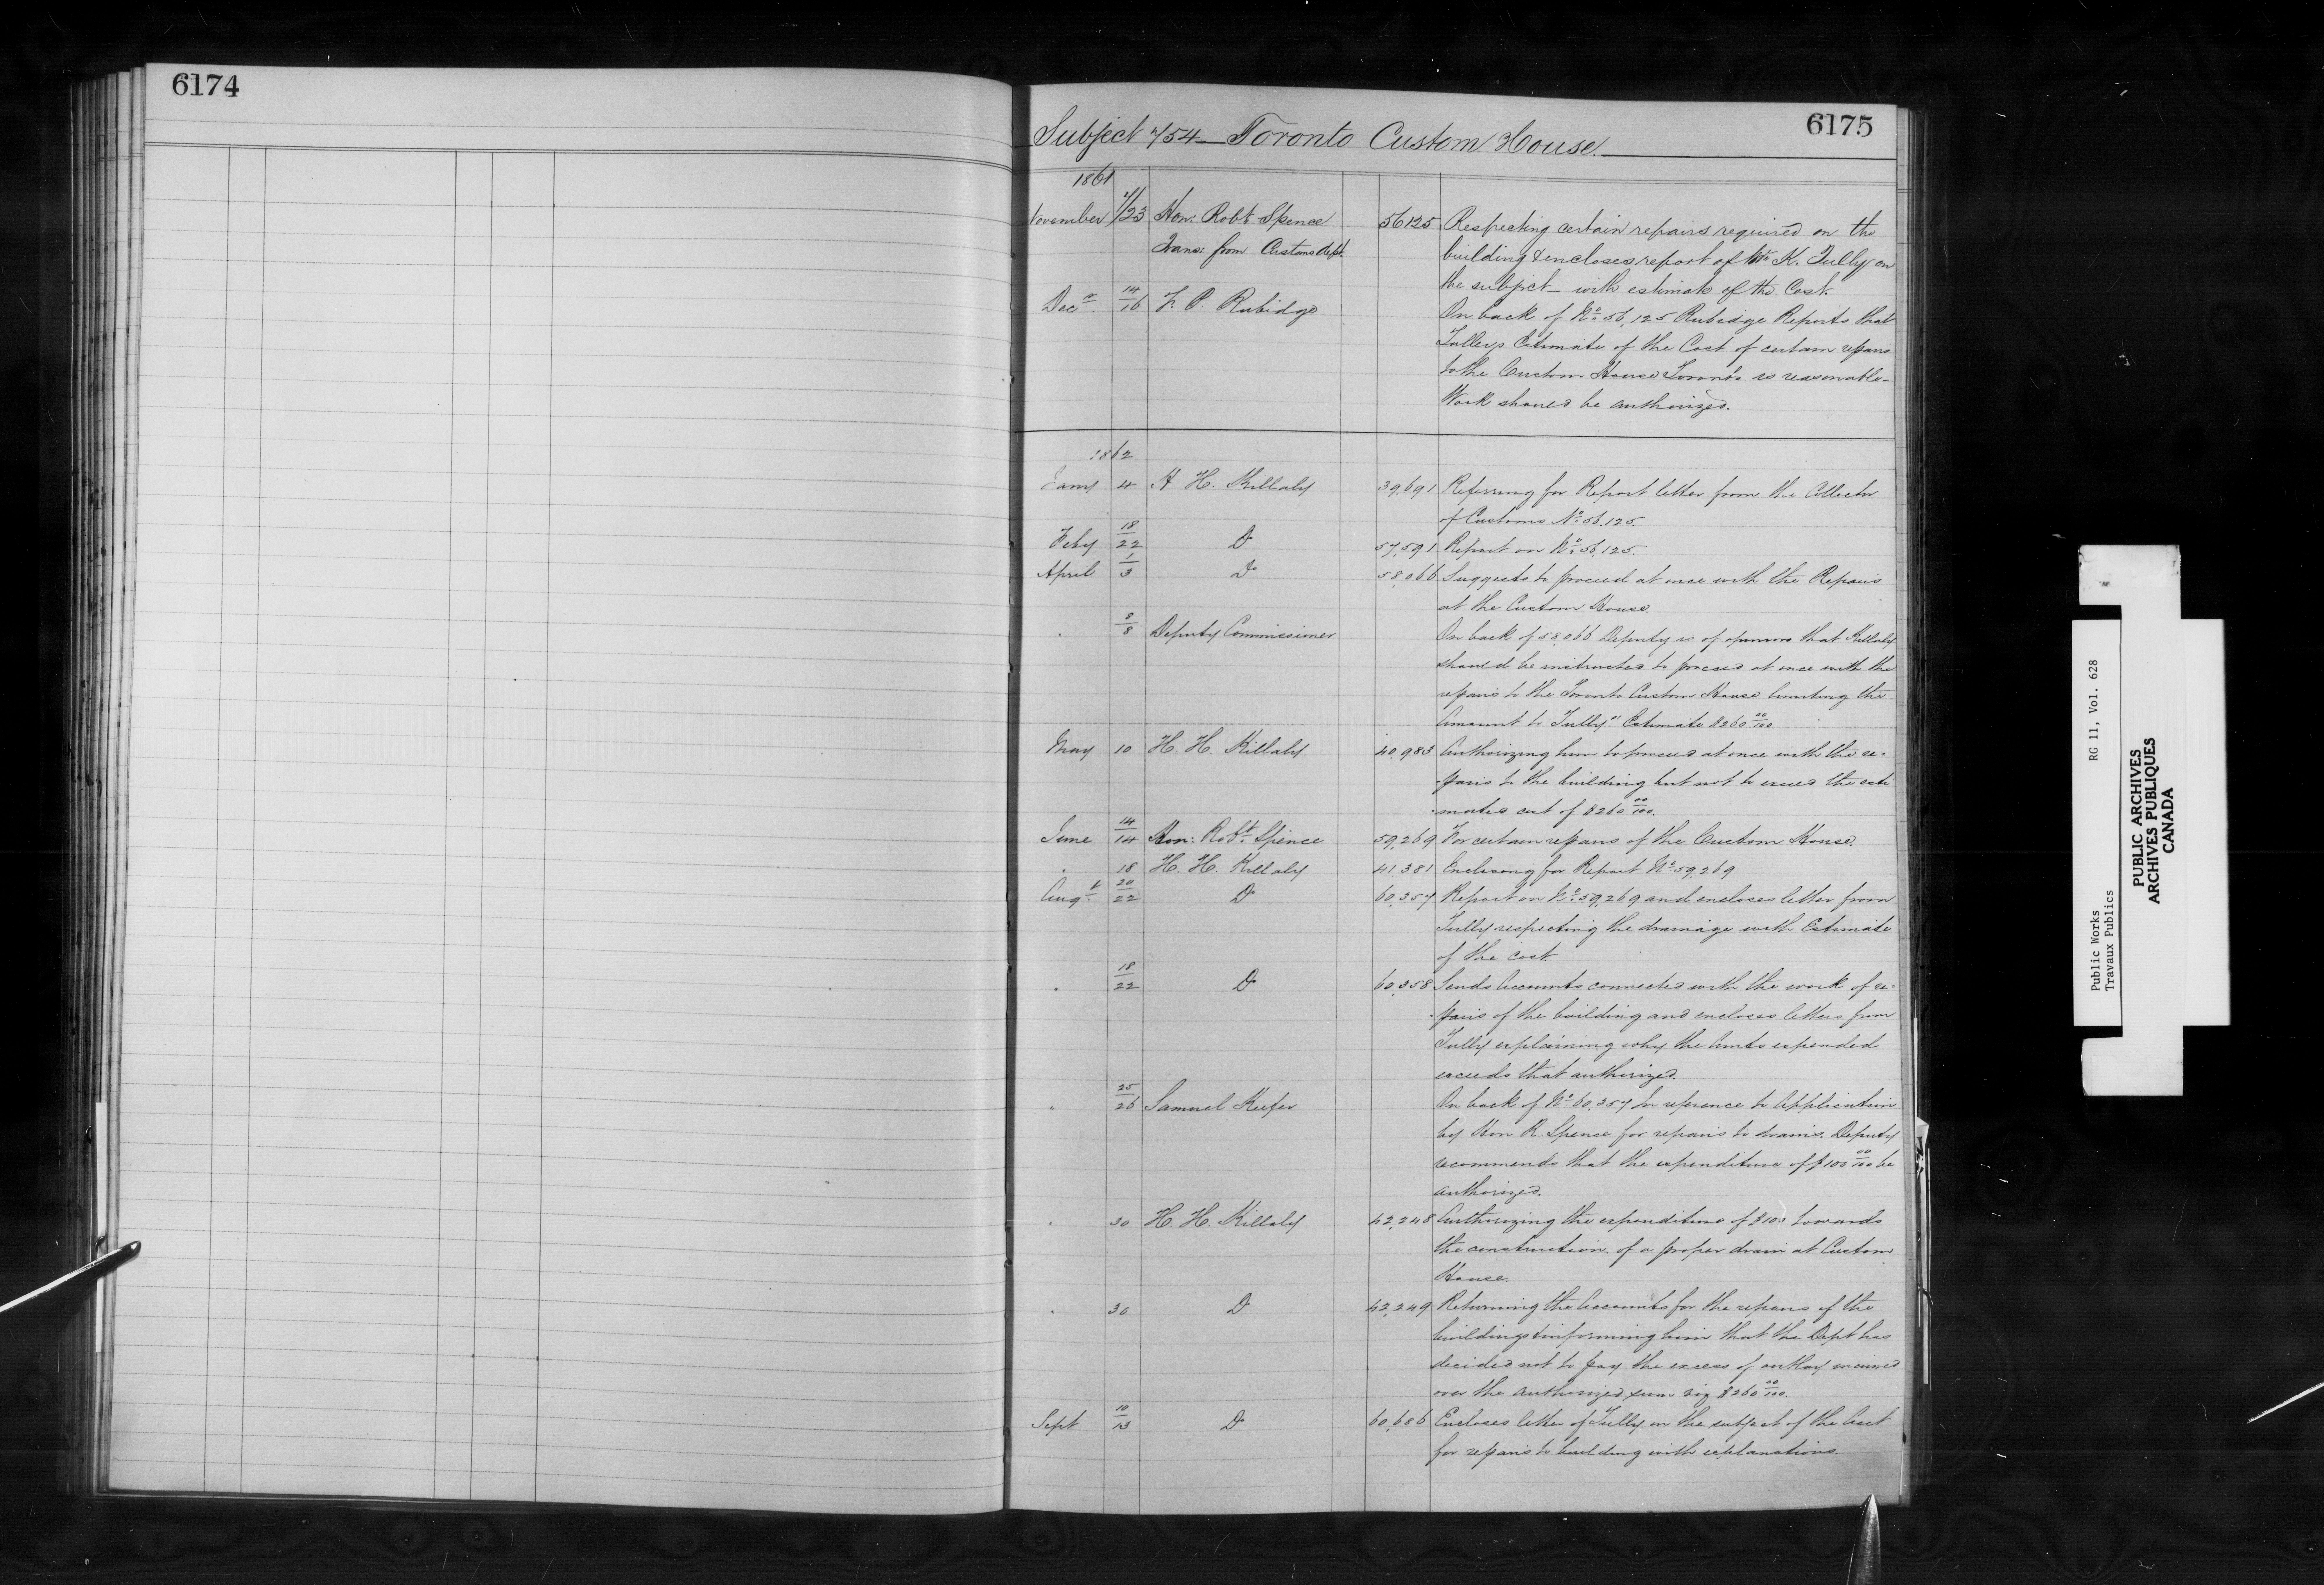 6174
6175
Subject 754 Toronto Custom House.
1861
November 7/23 Hon: Robt Spence 56125 Respecting certain repairs required on the
Trans: from Customs Dept. building & encloses report of Mr K. Tully on
the subject _ with estimate of the Cost.
Decr. 14/16 F. P. Rubidge On back of No. 56,125 Rubidge Reports that
Tully's Estimate of the Cost of certain repairs
to the Custom House Toronto is reasonable _
Work should be authorized.
1862
Jany 4 H. H. Killaly 39,691 Referring for Report letter from the Collector
of Customs No. 56,125.
Feby 18/22 Do 57,591 Report on No. 56,125.
April 1/3 Do 58,066 Suggests to proceed at once with the Repairs
at the Custom House.
" 8/8 Deputy Commissioner On back of 58,066 Deputy is of opinion that Killaly
should be instructed to proceed at once with the
repairs to the Toronto Custom House limiting the
Amount to Tully" Estimate $260 00/100
May 10 H. H. Killaly 40,983 Authorizing him to proceed at once with the re-
-pairs to the building but not to exceed the esti
mated cost of $260 00/100.
June 14/14 Hon: Robt. Spence 59,269 For certain repairs of the Custom House.
" 18 H. H. Killaly 41,381 Enclosing for Report No. 59,269
Augt. 20/22 Do 60,357 Report on No. 59,269 and encloses letter from
Tully respecting the drainage with Estimate
of the cost.
" 18/22 Do 60,358 Sends Accounts connected with the work of re-
-pairs of the building and encloses letters from
Tully explaining why the Amts expended
exceeds that authorized.
" 25/26 Samuel Keefer On back of No. 60,357 In reference to Application
by Hon R. Spence for repairs to drains. Deputy
recommends that the expenditure of $100 00/100 be
authorized.
" 30 H. H. Killaly 42,248 Authorizing the expenditure of $100 towards
the construction of a proper drain at Custom
House.
" 30 Do 42,249 Returning the Accounts for the repairs of the
buildings & informing him that the Dept has
decided not to pay the excess of outlay incurred
over the authorized sum viz $260 00/100.
Sept 10/13 Do 60,686 Encloses letter of Tully on the subject of the Acct
for repairs to building with explanations.
Public Works RG 11, Vol. 628
Travaux Publics
PUBLIC ARCHIVES
ARCHIVES PUBLIQUES
CANADA